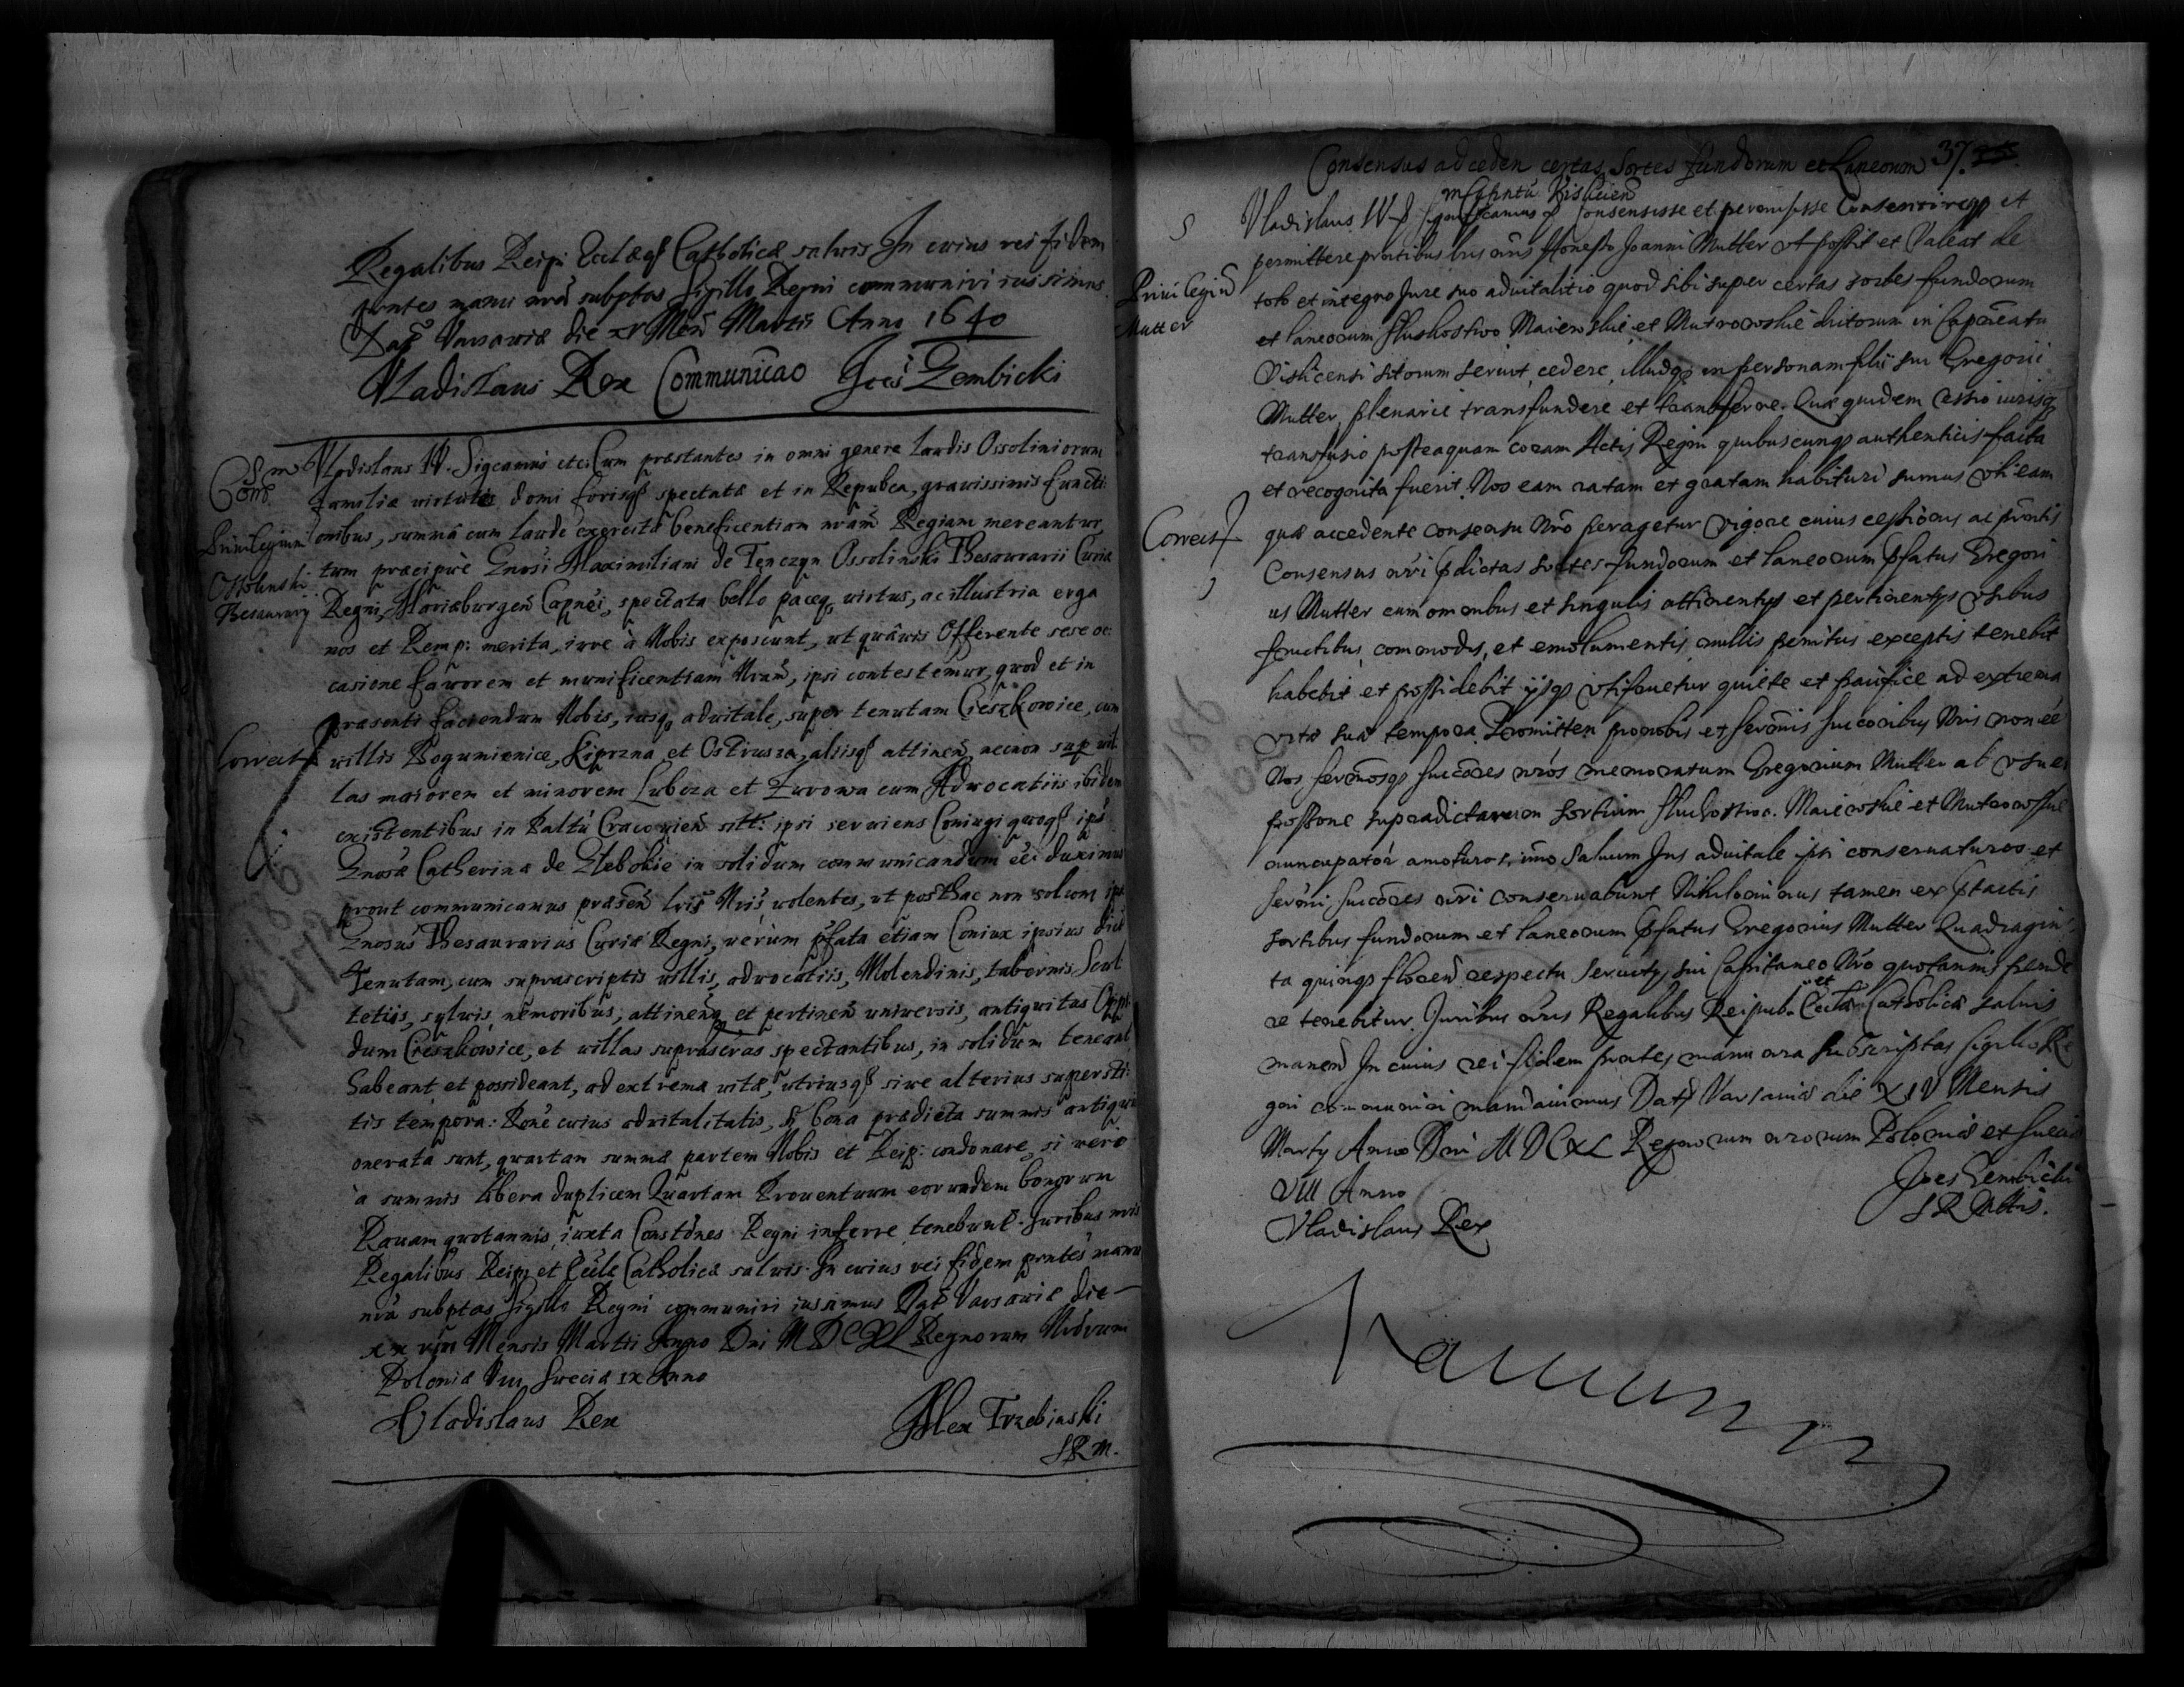 Regalibus Reipi Ecclaeq Catholicae salvis In cuius rei fidem
pntes manu nra subptas Sigillo Regni communiri iussimus.
Dat Varsaviae die xv Men Martii Anno 1640
Vladislaus Rex Communicao Joes Gembicki
Vladislaus IV. Sigcamus etc. Cum praestantes in omni genere laudis Ossoliniorum
Familiae virtutes domi forisq spectatae et in Repubca, gravissimis functi
onibus, summa cum laude exercitae beneficentiam nram Regiam mereantur
Privilegium
Ossolinski
Thesaurary
tum praecipue Gnosi Maximiliani de Tęnczyn Ossolinski Thesaurarii Curiae
Regni, Mariaeburgen Capnei, spectata bello paceq virtus, ac illustria erga
nos et Remp: merita, iure à Nobis exposcunt, ut quavis Offerente sese oc
casione favorem et munificentiam Nram, ipsi contestemur, quod et in
praesenti faciendum Nobis, iusq advitale, super tenutam Cieszkowice, cum
Correct
villis Bogumienice, Kiprzna et Ostrusza, aliisq attinen, necnon sup vil
las maiorem et minorem Lubcza et Zurowa cum Advocatiis ibidem
existentibus in Paltu Cracovien sitt: ipsi serviens Coniugi quoq ipsi
Gnosae Catherinae de Glebokie in solidum communicandum ee duximus
prout communicamus praesen lris Nris volentes, ut posthac non solum ipse
Gnosus Thesaurarius Curiae Regni, verùm pfata etiam Coniux ipsius dict
Tenutam, cum suprascriptis villis, advocatiis, Molendinis, tabernis, Scul
tetiis, sylvis, nemoribus, attinen et pertinen universis, antiquitus Oppi
dum Cieszkowice, et villas suprascras spectantibus, in solidum teneant
habeant et possideant, ad extrema vitae utriusq sive alterius supersti
tis tempora: Rone cuius advitalitatis, si bona praedicta summis antiquis
onerata sunt, quartam summae partem Nobis et Reip: condonare, si vero
à summis libera duplicem Quartam Proventuum eorundem bonorum
Ravam quotannis, iuxta Constones Regni inferre tenebunt. Juribus nris
Regalibus Reip et Eccle Catholicae salvis. In cuius rei fidem pntes manu
nra subptas Sigillo Regni communiri iussimus Dat Varsaviae die
xxviii Mensis Martii Anno Dni MDCXL Regnorum Nrorum
Poloniae VIII Sveciae IX Anno
Vladislaus Rex Alex Trzebinski
SRM.
Consensus ad ceden certas Sortes fundorum et Laneorum 37.
Vladislaus IV Significamus Consensisse et permisisse Consentireq et
permittere pntibus lris nris Honesto Joanni Mutter ut possit et Valeat de
Privilegiu
Mutter
toto et integro Jure suo advitalitio quod sibi super certas sortes fundorum
et laneorum
Visliciensi sitorum servit, cedere, illudq in personam filii sui Gregorii
Mutter, plenarie transfundere et transferre. Quae quidem cessio iurisq
transfusio posteaquam coram Actis Regni quibuscunq authenticis facta
et recognita fuerit. Nos eam ratam et gratam habituri sumus Uti eam
Correct
quae accedente consensu Nro peragetur Vigore cuius cessionis ac pntis
Consensus nri pdictas sortes fundorum et laneorum pfatus Gregori
us Mutter cum omnibus et singulis attinentys et pertinentys Usibus
fructibus, commodis, et emolumentis nullis penitus exceptis tenebit
habebit et possidebit ijsq utifruetur quiete et pacifice ad extrema
vitae suae tempora Promitten pronobis et Serenis Succoribus Nris non ee
Nos Serenosq Succores nros memoratum Gregorium Mutter ab usu et
possone supradictarum sortium
nuncupator amoturos, imo Salvum Jus advitale ipsi conservaturos et
Sereni Succores nri conservabunt Nihilominus tamen ex ptactis
sortibus fundorum et laneorum pfatus Gregorius Mutter Quadragin
ta quinq floren respectu servity sui Capitaneo Nro quotannis pende
re tenebitur. Juribus nris Regalibus Reipub. et Eccltae Catholicae salvis
manen In cuius rei fidem pntes manu nra subscriptas sigillo Re
gni communiri mandavimus Dat Varsaviae die XIV Mensis
Marty Anno Dni MDCXL Regnorum nrorum Poloniae et Sueciae
VIII Anno Joes Gembicki
Vladislaus Rex SRMttis.